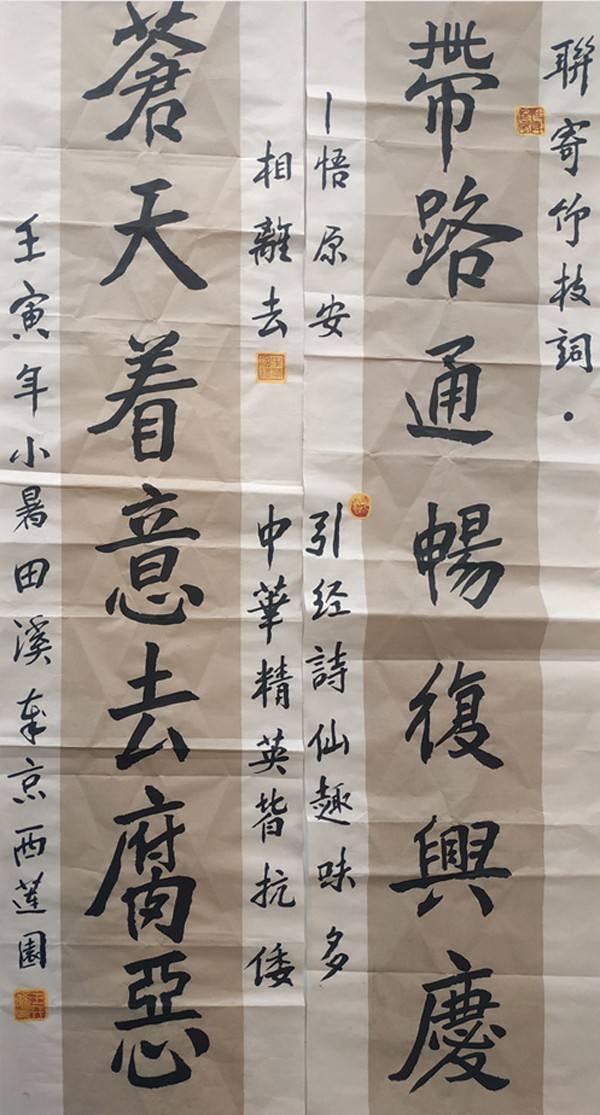 聯寄竹枝詞·
帶路通暢復興慶
引经詩仙趣味多
一悟原安
中華精英皆抗倭
相離去
蒼天着意去腐惡
壬寅年小暑田溪奉京西蓮園